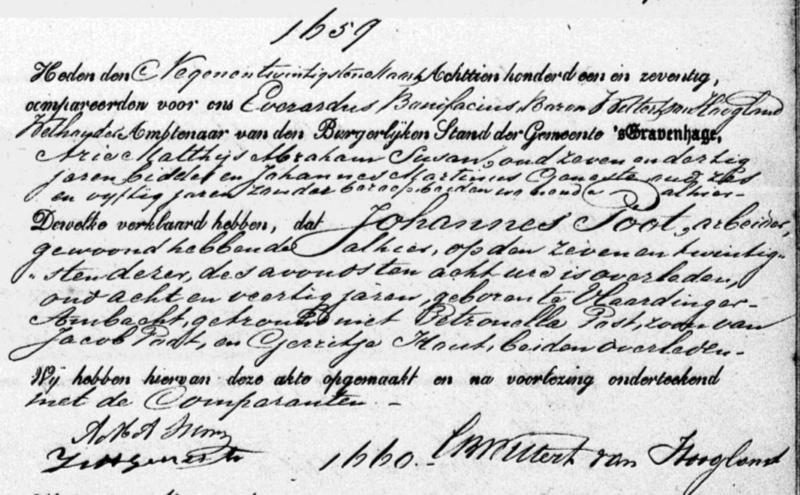 1659
Heden den Negenentwintigsten Maart Achttien honderd een en zeventig,
compareerden voor ons Everardus Bonifacius, Baron Wittert van Hoogland
Wethouder Ambtenaar van den Burgerlijken Stand der Gemeente 's Gravenhage,
Arie Matthijs Abraham Susan, oud zeven en dertig
jaren bidder en Johannes Martinus oud zes
en vijftig jaren zonder beroep beiden wonende alhier.
Dewelke verklaard hebben, dat Johannes Poot, arbeider,
gewoond hebbende alhier, op den zevenentwintig-
sten dezer, des avonds ten acht ure is overleden,
oud acht en veertig jaren, geboren te Vlaardinger-
Ambacht, getrouwd met Petronella Post, zoon van
Jacob Poot, en Gerritje Hout, beiden overleden.
Wij hebben hiervan deze akte opgemaakt en na voorlezing onderteekend
met de Comparanten.
A M A Susan
Wittert van Hoogland
1660.